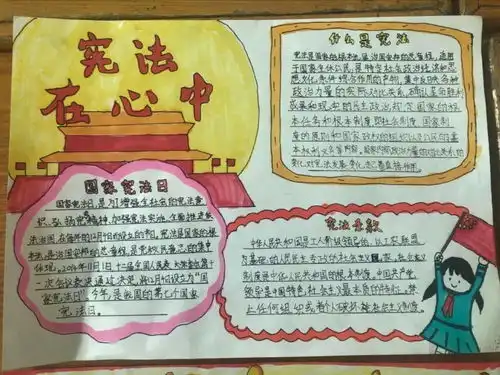 宪法
在心中
什么是宪法
宪法是国家的根本法,是治国安邦的总章程,适用
于国家全体公民,是特定社会政治经济和思
想文化条件综合作用的产物,集中反映各种
政治力量的实际对比关系,确认革命胜利
成果和现实的民主政治,规定国家的根
本任务和根本制度,即社会制度、国家制
度的原则和国家政权的组织以及公民的基
本权利义务等内容。
国家宪法日
国家宪法日,是为了增强全社会的宪法意
识,弘扬宪法精神,加强宪法实施,全面推进依
法治国,在每年的12月4日
法,是治国安邦的总章程,是党和人民意志的集中
体现。2014年11月1日,十二届全国人民表大常委第十
一次会议表决通过决定,将12月4日设立为"国
家宪法日"。今年,是我国的第七个国家
宪法日。
宪法条款
中华人民共和国是工人阶级领导的,以工农联盟
为基础的人民民主专政的社会主义国家,社会主义
制度是中华人民共和国的根本制度。中国共产党
领导是中国特色社会主义最本质的特征。禁
止任何组织或者个人破坏社会主义制度。